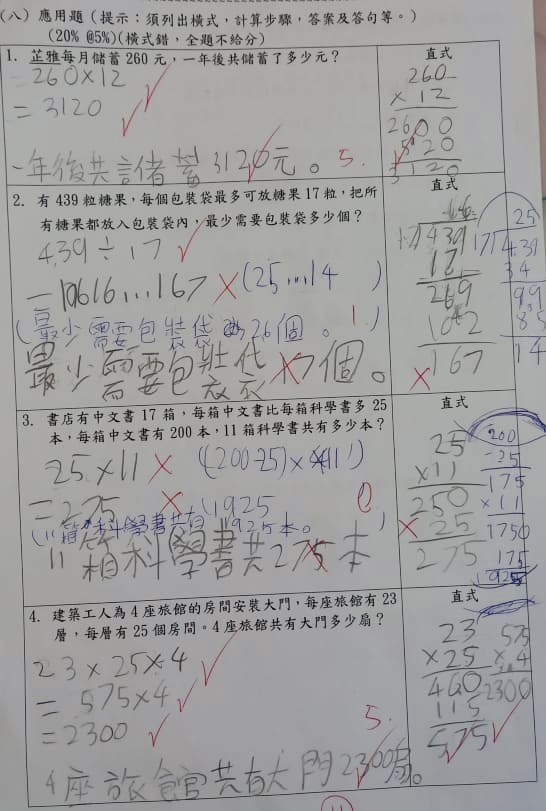 (八) 應用題 (提示：須列出橫式，計算步驟，答案及答句等。)
(20% @5%)(橫式錯，全題不給分)
1. 芷雅每月儲蓄 260 元，一年後共儲蓄了多少元？
直式
260×12
= 3120
一年後共計儲蓄 3120元。 5.
260
× 12
2600
520
3120
2. 有 439 粒糖果，每個包裝袋最多可放糖果 17 粒，把所
有糖果都放入包裝袋內，最少需要包裝袋多少個？
直式
439÷17
(25...14 )
(最少需要包裝袋 26個。 1.)
最少需要包裝袋 17個。
17 439
167
25
17 439
34
99
85
14
3. 書店有中文書 17 箱，每箱中文書比每箱科學書多 25
本，每箱中文書有 200 本，11 箱科學書共有多少本？
直式
25×11 ((200-25)×11 )
= 275 (1925 0
(11箱科學書共有 1925本。 )
11箱科學書共275本
25
×11
250
25
275
200
-25
175
×11
1750
175
1925
4. 建築工人為 4 座旅館的房間安裝大門，每座旅館有 23
層，每層有 25 個房間。4 座旅館共有大門多少扇？
直式
23×25×4
= 575×4
=2300
5.
4座旅館共有大門2300扇。
23
×25
460
115
575
575
× 4
2300